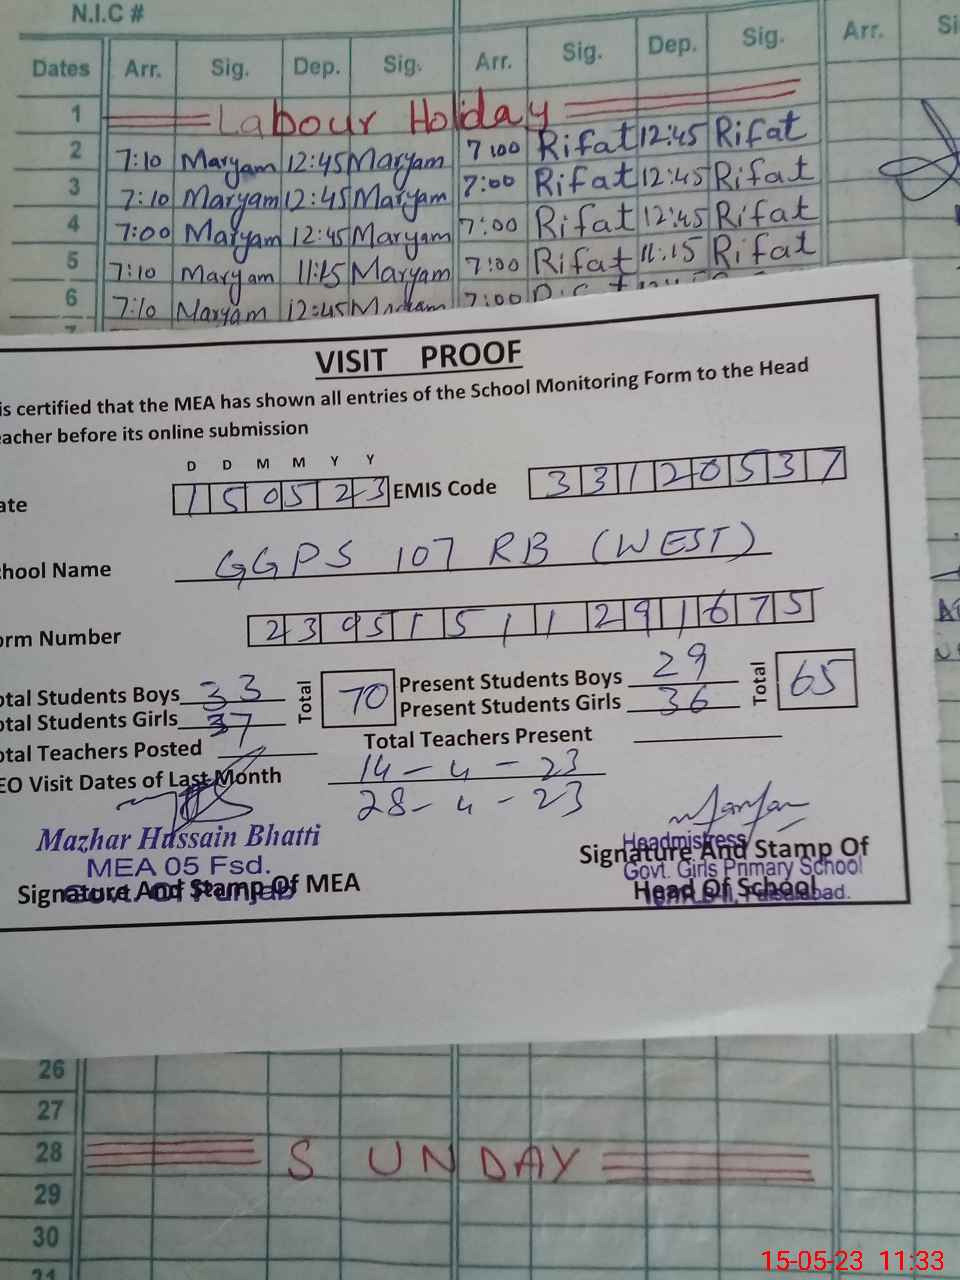 N.I.C #
Dates Arr. Sig. Dep. Sig. Arr. Sig. Dep. Sig. Arr.
1 Labour Holiday
2 7:10 Maryam 12:45 Maryam 7:00 Rifat 12:45 Rifat
3 7:10 Maryam 12:45 Maryam 7:00 Rifat 12:45 Rifat
4 7:00 Maryam 12:45 Maryam 7:00 Rifat 12:45 Rifat
5 7:10 Maryam 11:15 Maryam 7:00 Rifat 11:15 Rifat
6 7:10 Maryam 12:45 Maryam 7:00
VISIT PROOF
is certified that the MEA has shown all entries of the School Monitoring Form to the Head
eacher before its online submission
D D M M Y Y
ate 150523 EMIS Code 33120537
chool Name GGPS 107 RB (WEST)
orm Number 23951511291675
otal Students Boys 33 Total 70 Present Students Boys 29 Total 65
otal Students Girls 37 Present Students Girls 36
otal Teachers Posted Total Teachers Present
EO Visit Dates of Last Month 14-4-23
28-4-23
Mazhar Hussain Bhatti
MEA 05 Fsd.
Govt. Of Punjab
Signature And Stamp Of MEA
Headmistress
Signature And Stamp Of
Govt. Girls Primary School
Head Of School
Faisalabad.
26
27
28 SUNDAY
29
30
31
15-05-23 11:33